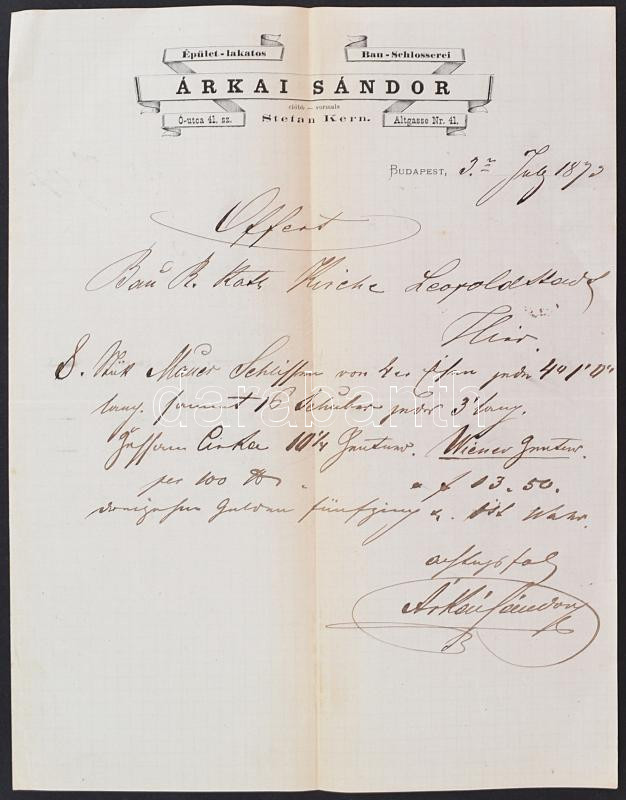 Épület-lakatos Bau-Schlosserei
ÁRKAI SÁNDOR
előbb — vormals
Ó-utca 41. sz. Stefan Kern. Altgasse Nr. 41.
BUDAPEST, July 187
Offert
Bau R. Kath Kirche Leopoldstadt
Hier
8. Stük Mauer Schliessen von Eisen jede
lang. sammt 16 Schuber jeder 3' lang.
Cirka 10¼ Zentner. Wiener Zentner.
per 100 " " f 13.50.
dreizehn Gulden fünfzig
achtungsvoll
Árkai Sándor
darabanth